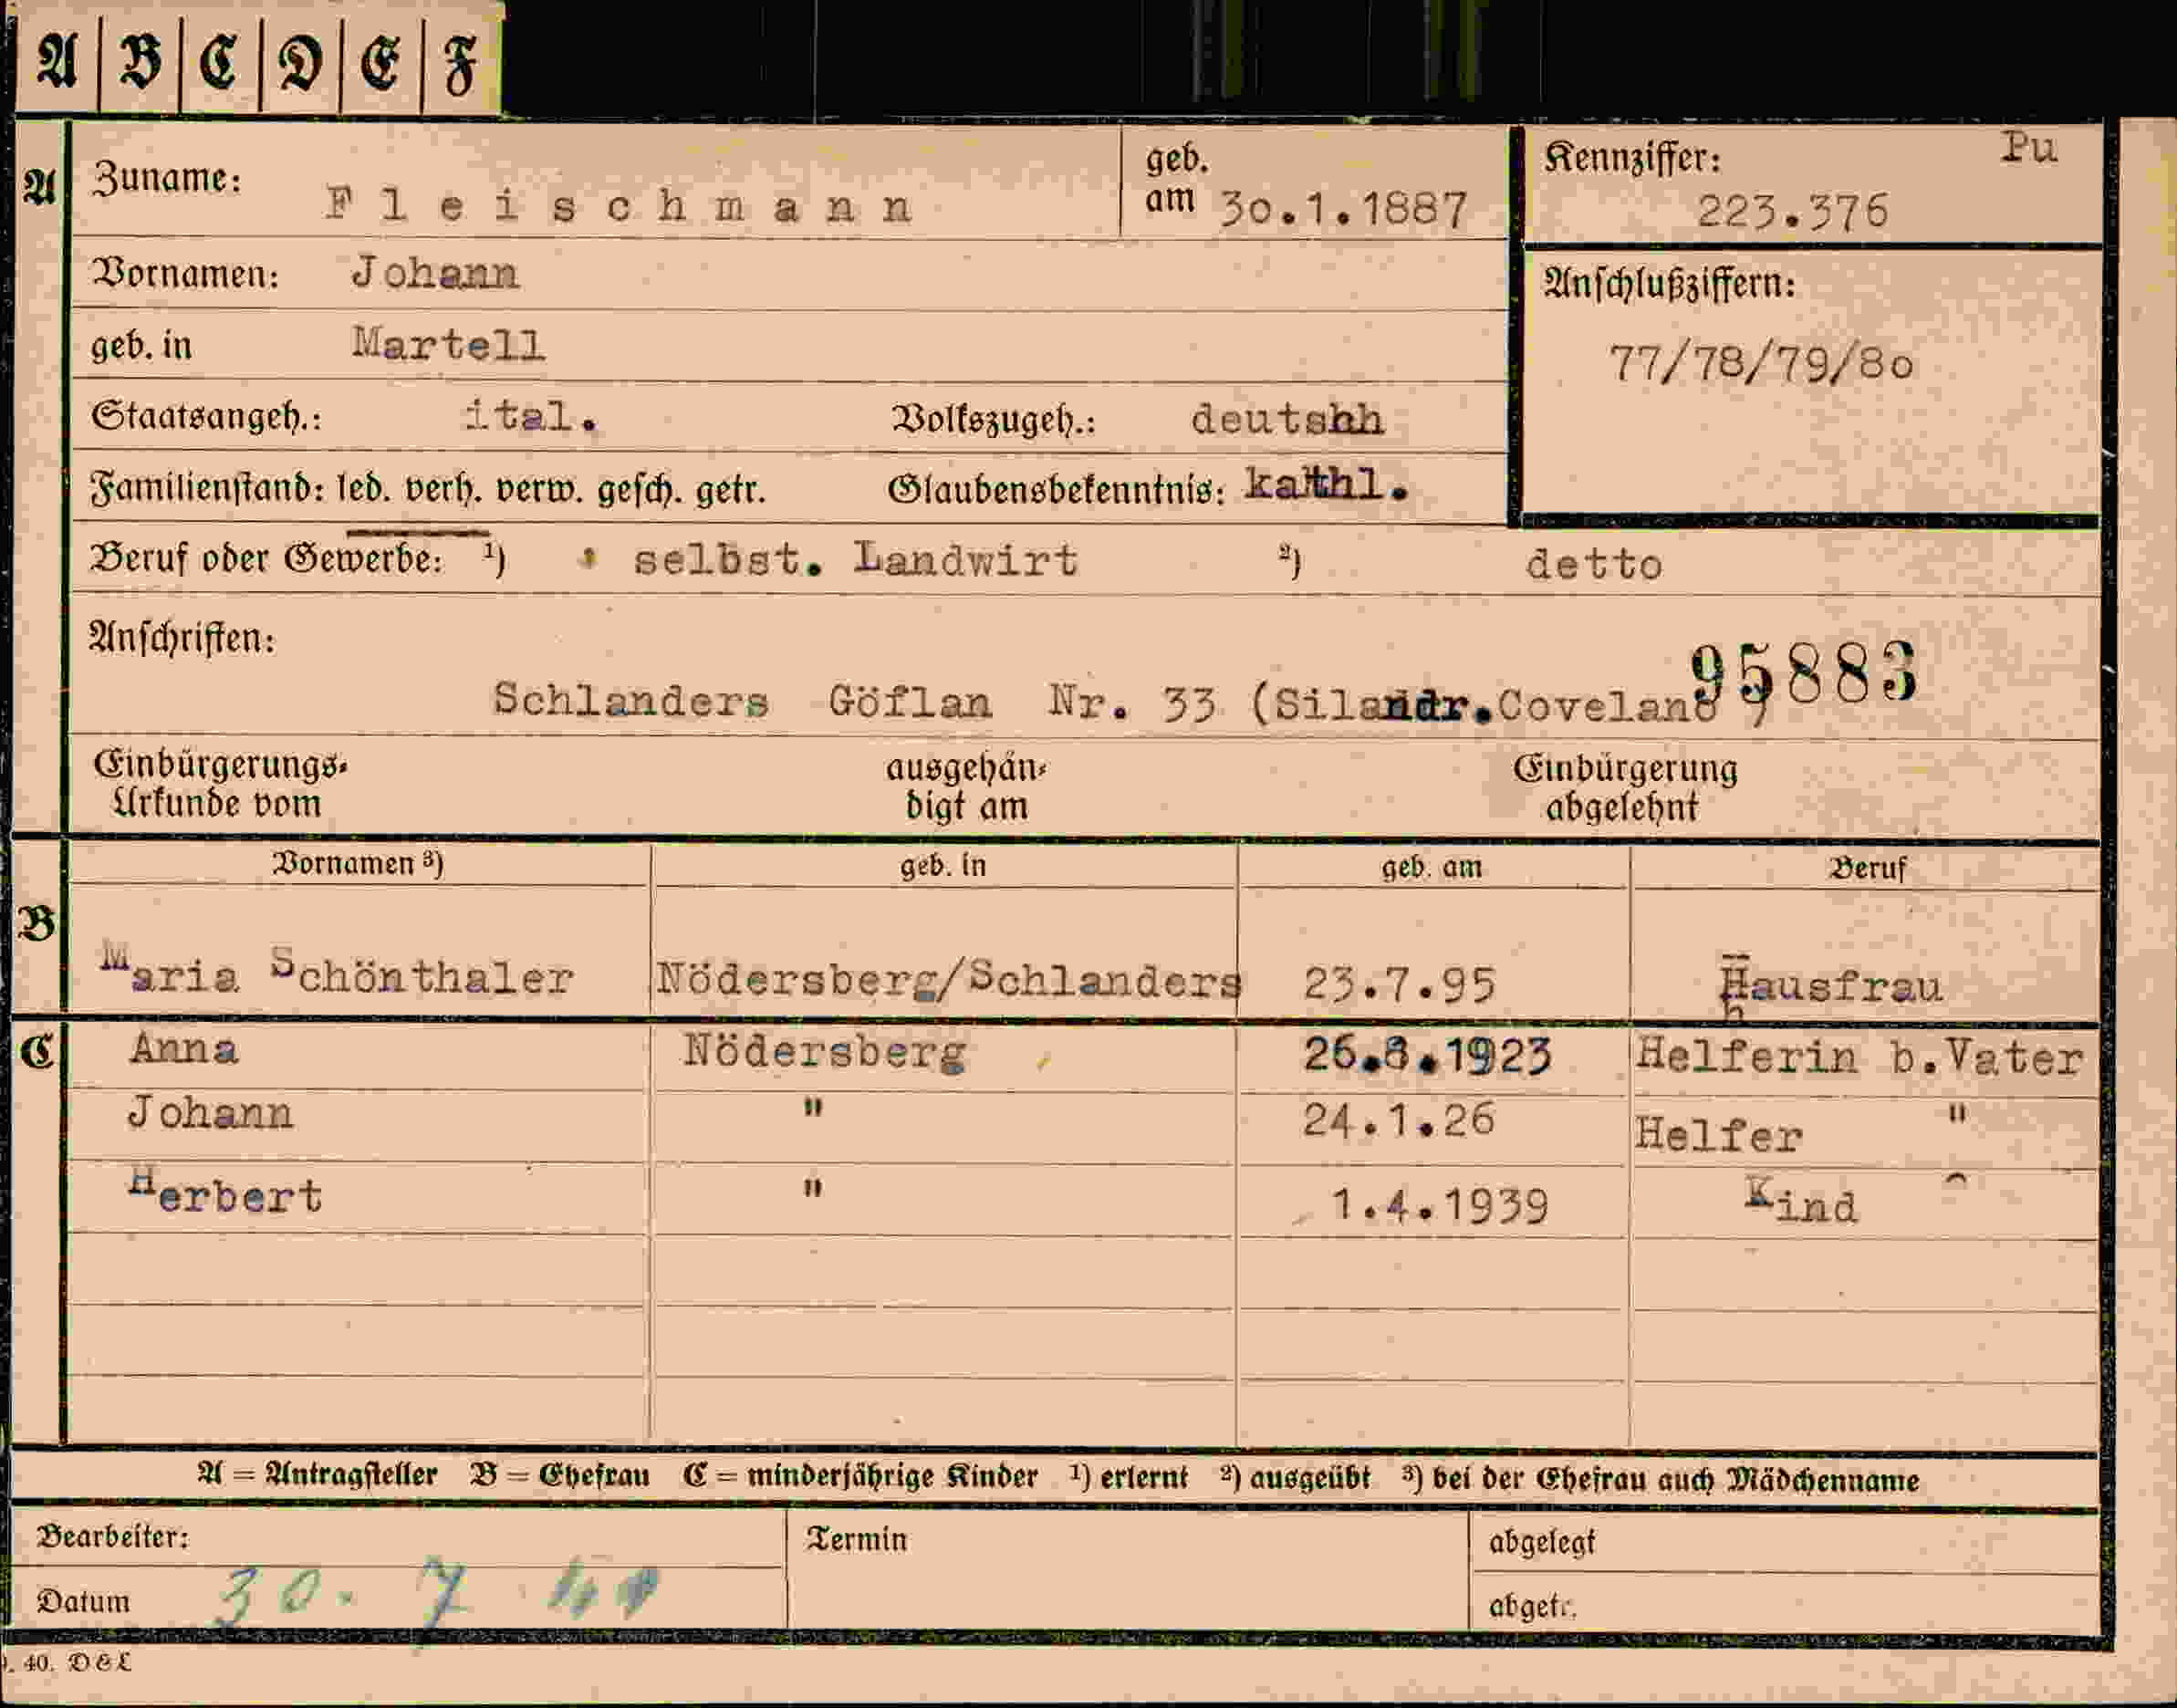 A B C D E F
A Zuname: Fleischmann geb. am 30.1.1887 Kennziffer: Pu
223.376
Vornamen: Johann Anschlußziffern:
geb. in Martell 77/78/79/80
Staatsangeh.: ital. Volkszugeh.: deutshh
Familienstand: led. verh. verw. gesch. getr. Glaubensbekenntnis: kathl.
Beruf oder Gewerbe: ¹) selbst. Landwirt ²) detto
Anschriften: 95883
Schlanders Göflan Nr. 33 (Silandr.Covelano )
Einbürgerungs- ausgehän- Einbürgerung
Urkunde vom digt am abgelehnt
Vornamen ³) geb. in geb. am Beruf
B Maria Schönthaler Nödersberg/Schlanders 23.7.95 Hausfrau
C Anna Nödersberg 26.8.1923 Helferin b.Vater
Johann " 24.1.26 Helfer "
Herbert " 1.4.1939 Kind
A = Antragsteller B = Ehefrau C = minderjährige Kinder ¹) erlernt ²) ausgeübt ³) bei der Ehefrau auch Mädchenname
Bearbeiter: Termin abgelegt
Datum 30. 7 41 abgetr.
40. D & L